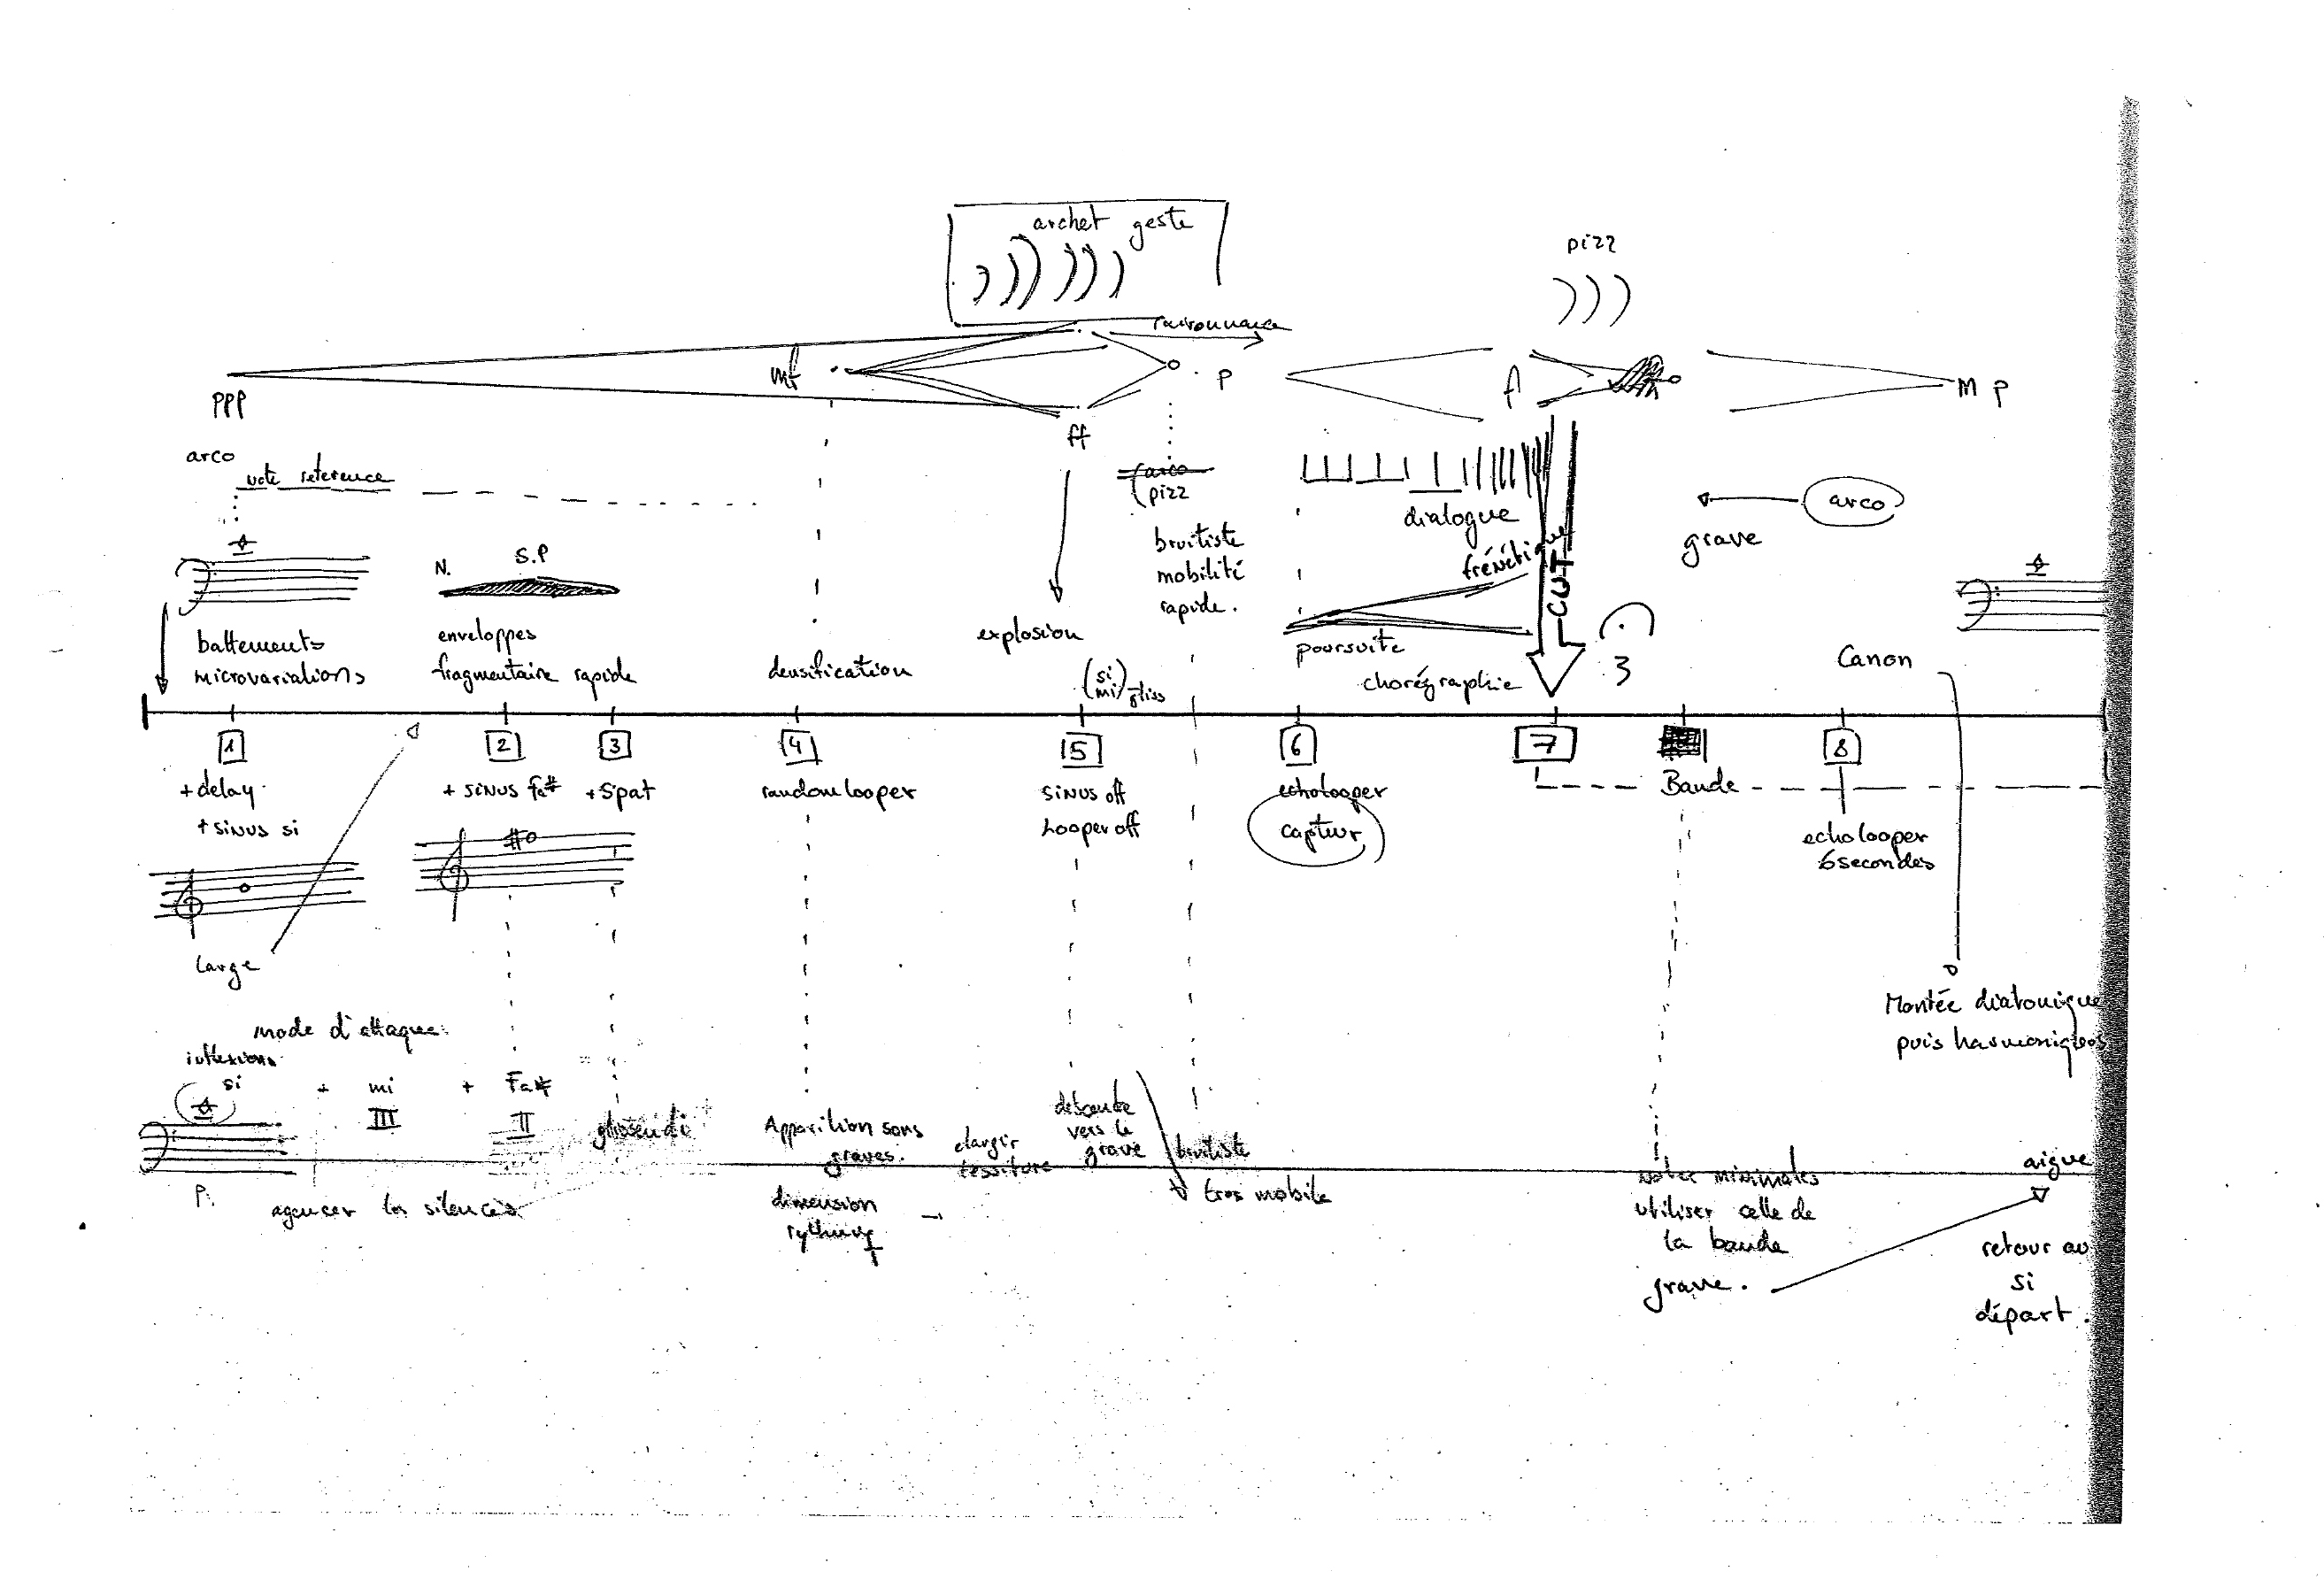 archet geste
pizz
résonnance
mf
ppp
p
f
M p
ff
arco
note reference
arco
pizz
dialogue
frénétique
CUT
arco
grave
bruitiste
mobilité
rapide.
N.
S.P
battements
microvariations
enveloppes
fragmentaire rapide
densification
explosion
(si
mi) gliss
poursuite
chorégraphie
3
Canon
1
2
3
4
5
6
7
8
+delay
+sinus si
+ sinus fa#
+Spat
random looper
sinus off
Looper off
echolooper
captur
Bande
echolooper
6 secondes
large
Montée diatonique
puis harmoniques
mode d'attaque
inflexions
si
+ mi
III
+ Fa#
II
glissendi
Apparition sons
graves.
elargir
tessiture
descente
vers le
grave
bruitiste
tres mobile
aigue
P.
agencer les silences
dimension
rythmq
notes minimales
utiliser celle de
la bande
grave.
retour au
si
départ.